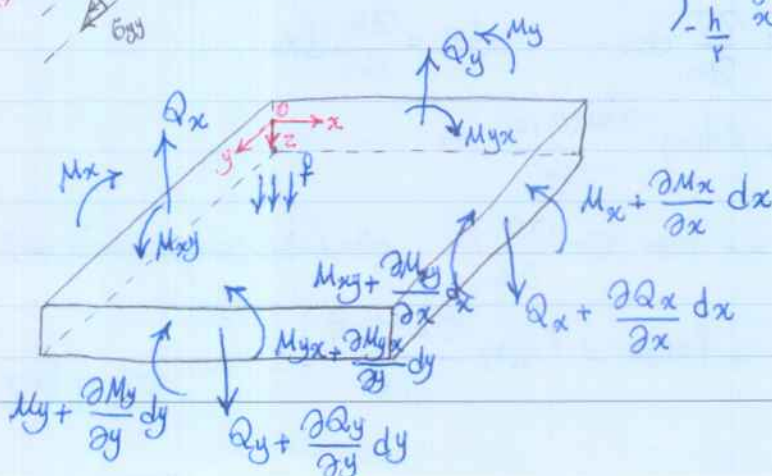 σyy
- h/2 x
Qy My
Qx
o x
y z
Mx
Myx
f
Mxy
Mx + ∂Mx/∂x dx
Mxy + ∂Mxy/∂x dx
Qx + ∂Qx/∂x dx
Myx + ∂Myx/∂y dy
My + ∂My/∂y dy
Qy + ∂Qy/∂y dy